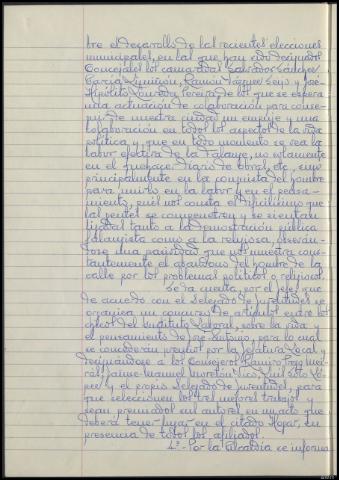 bre el desarrollo de las recientes elecciones
municipales, en las que han sido designados
Concejales los camaradas Salvador Sánchez
García, Ramón Vázquez Seijo y José
Hipólito Lourada Pereira de los que se espera
una actuación de colaboración para conse-
guir de nuestra ciudad un empuje y una
colaboración en todos los aspectos de la vida
política y que en todo momento se vea la
labor efectiva de la Falange, no solamente
en el quehacer diario de obras, etc, sino
principalmente en la conquista del hombre
para unirlo en la labor y en el pensa-
miento, pues nos consta el dificilísimo que
las gentes se compenetren y se sientan
ligadas tanto a la demostración pública
falangista como a la religiosa, observán-
dose una pasividad que nos muestra cons-
tantemente el abandono del hombre de la
calle por los problemas políticos o religiosos.
Se da cuenta, por el jefe que
de acuerdo con el Delegado de Juventudes se
organiza un concurso de artículos entre los
chicos del Instituto Laboral, sobre la vida y
el pensamiento de José Antonio, para lo cual
se concederán premios por la Jefatura Local, y
designándose a los Consejeros
Jaime Manuel Moretón Luis Soto Ló-
pez y el propio Delegado de Juventudes, para
que seleccionen los tres mejores trabajos y
sean premiados sus autores en un acto que
deberá tener lugar en el citado Hogar, en
presencia de todos los afiliados.
4º.- Por la Alcaldía se informa